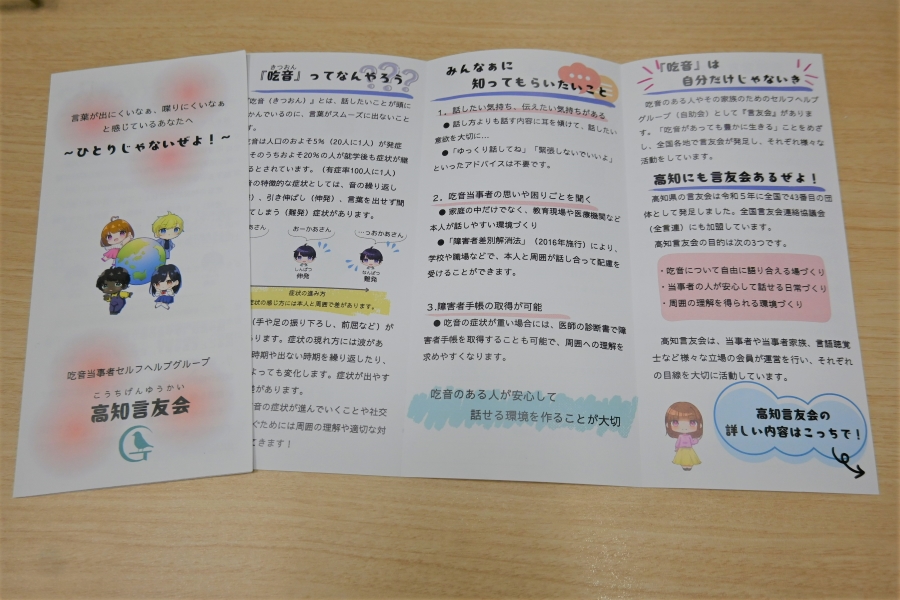 言葉が出にくいなぁ、喋りにくいなぁ
と感じているあなたへ
～ひとりじゃないぜよ！～
吃音当事者セルフヘルプグループ
こうちげんゆうかい
高知言友会
きつおん
『吃音』ってなんやろう
???
吃音（きつおん）』とは、話したいことが頭に
かんでいるのに、言葉がスムーズに出ないこと
す。
音は人口のおよそ5％（20人に1人）が発症
そのうちおよそ20％の人が就学後も症状が継
るとされています。（有症率100人に1人）
音の特徴的な症状としては、音の繰り返し
）、引き伸ばし（伸発）、言葉を出せず間
てしまう（難発）症状があります。
かあさん
おーかあさん
…っおかあさん
しんぱつ
伸発
なんぱつ
難発
症状の進み方
症状の感じ方には本人と周囲で差があります。
（手や足の振り下ろし、前屈など）が
ります。症状の現れ方には波があ
時期や出ない時期を繰り返したり、
よっても変化します。症状が出やす
差があります。
音の症状が進んでいくことや社交
ぐためには周囲の理解や適切な対
てきます！
みんなぁに
知ってもらいたいこと
1、話したい気持ち、伝えたい気持ちがある
● 話し方よりも話す内容に耳を傾けて、話したい
意欲を大切に…
● 「ゆっくり話してね」「緊張しないでいいよ」
といったアドバイスは不要です。
2．吃音当事者の思いや困りごとを聞く
● 家庭の中だけでなく、教育現場や医療機関など
本人が話しやすい環境づくり
● 「障害者差別解消法」（2016年施行）により、
学校や職場などで、本人と周囲が話し合って配慮を
受けることができます。
3.障害者手帳の取得が可能
● 吃音の症状が重い場合には、医師の診断書で障
害者手帳を取得することも可能で、周囲への理解を
求めやすくなります。
吃音のある人が安心して
話せる環境を作ることが大切
「吃音」は
自分だけじゃないき
吃音のある人やその家族のためのセルフヘルプ
グループ（自助会）として『言友会』がありま
す。「吃音があっても豊かに生きる」ことをめざ
し、全国各地で言友会が発足し、それぞれ様々な
活動をしています。
高知にも言友会あるぜよ！
高知県の言友会は令和５年に全国で43番目の団
体として発足しました。全国言友会連絡協議会
（全言連）にも加盟しています。
高知言友会の目的は次の3つです。
・吃音について自由に語り合える場づくり
・当事者の人が安心して話せる日常づくり
・周囲の理解を得られる環境づくり
高知言友会は、当事者や当事者家族、言語聴覚
士など様々な立場の会員が運営を行い、それぞれ
の目線を大切に活動しています。
高知言友会の
詳しい内容はこっちで！